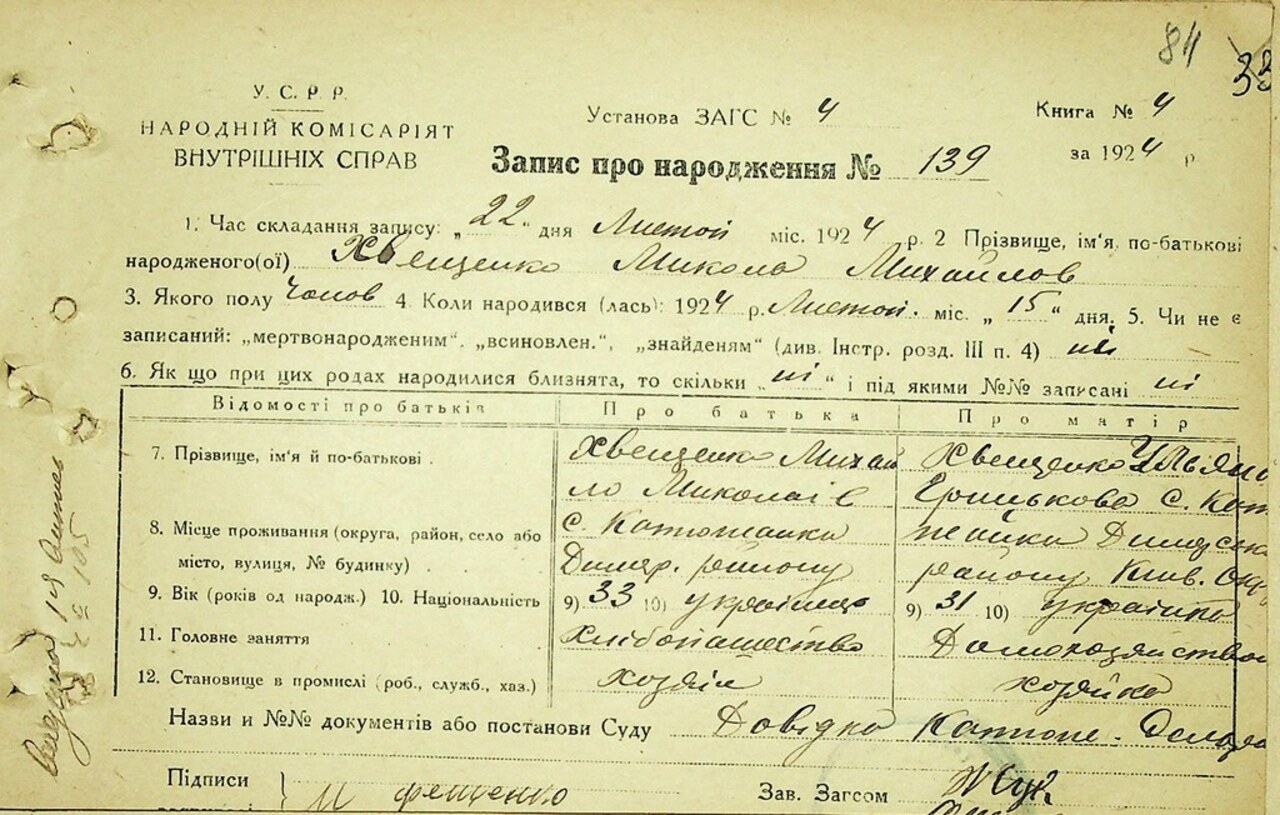 84 33
У. С. Р. Р.
НАРОДНІЙ КОМІСАРІЯТ
ВНУТРІШНІХ СПРАВ
Установа ЗАГС № 4
Книга № 4
за 1924 р
Запис про народження № 139
1. Час складання запису: „22" дня Лютой міс. 1924 р. 2 Прізвище, ім'я, по-батькові
народженого(ої) Хвещенко Микола Михайлов
3. Якого полу чолов 4. Коли народився (лась): 1924 р. Лютой. міс. „15" дня, 5. Чи не є
записаний: „мертвонародженим", „всиновлен.", „знайденям" (див. Інстр. розд. III п. 4) ні
6. Як що при цих родах народилися близнята, то скільки „ні" і під якими №№ записані ні
Відомості про батьків Про батька Про матір
7. Прізвище, ім'я й по-батькові . Хвещенко Михай Хвещенко Ульяна
ло Миколаїв Грицькова с. Кат
8. Місце проживання (округа, район, село або с. Катюжанка
місто, вулиця, № будинку) . Димер. району району Киів. Окр
9. Вік (років од народж.) 10. Національність 9) 33 10) українець 9) 31 10) українка
11. Головне заняття хлібопашество Домохозяйство
12. Становище в промислі (роб., служб., хаз.) хозяін хозяйка
Назви и №№ документів або постанови Суду Довідка Катюж.
Підписи } Зав. Загсом